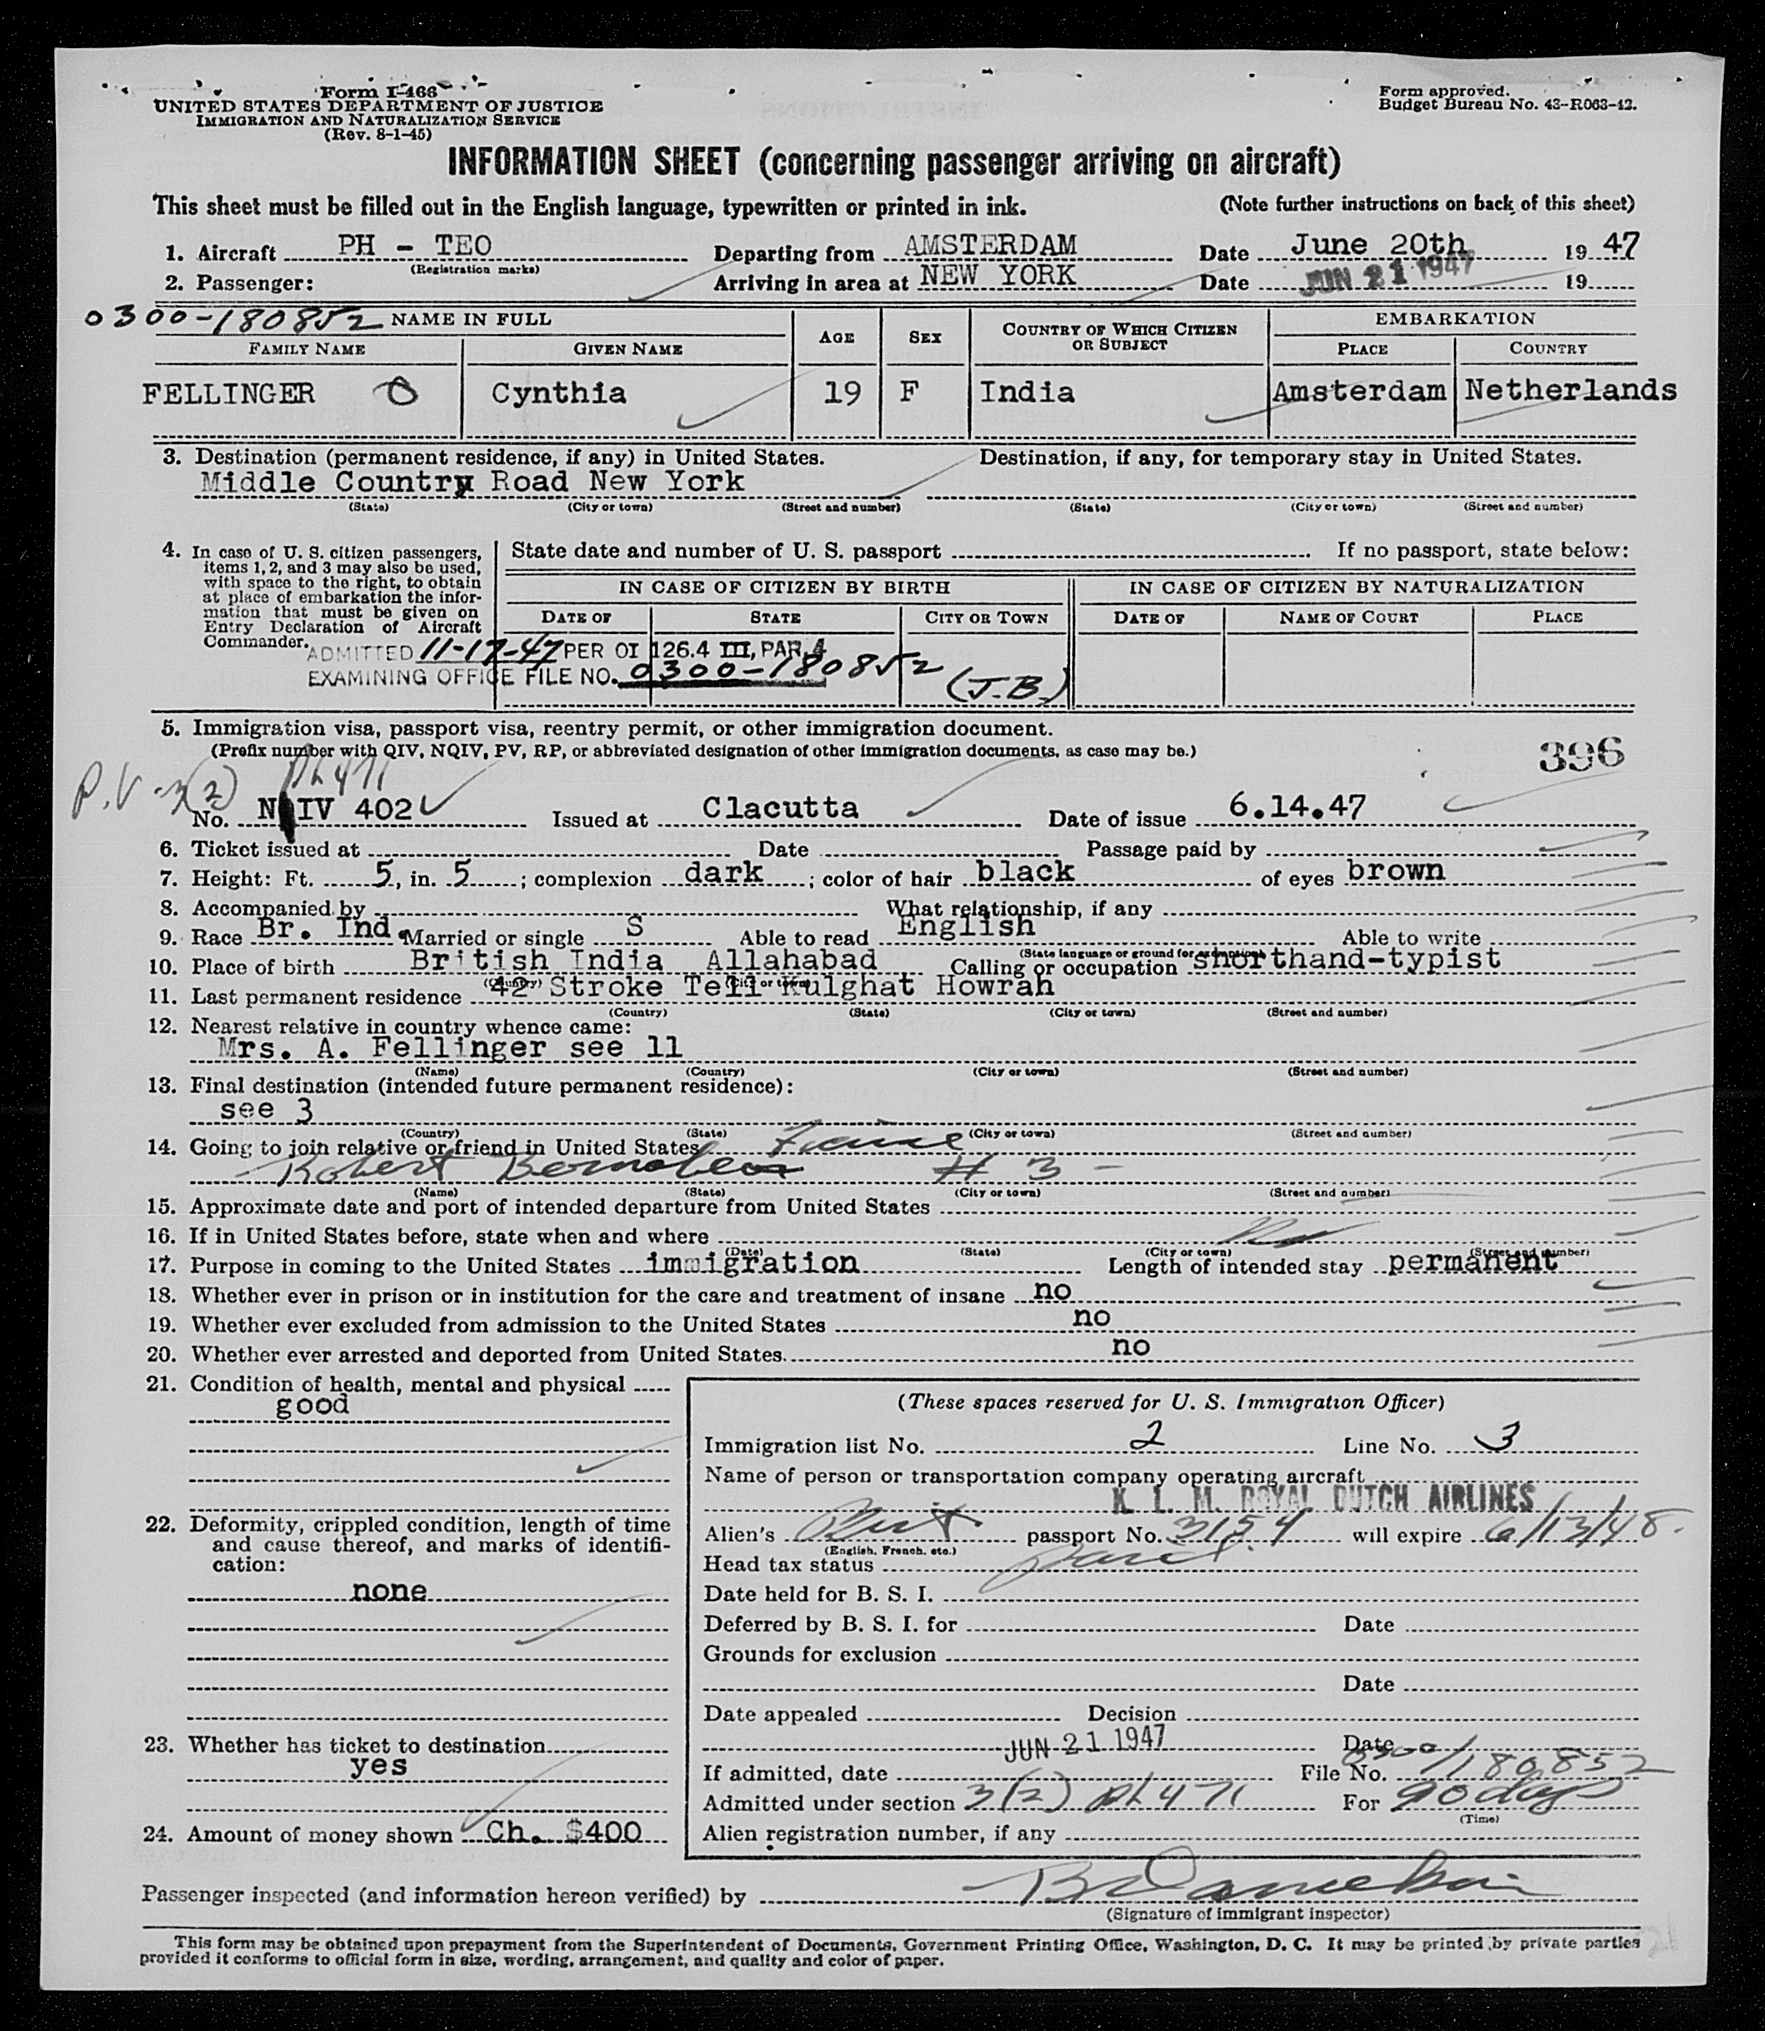 Form I-466
UNITED STATES DEPARTMENT OF JUSTICE
IMMIGRATION AND NATURALIZATION SERVICE
(Rev. 8-1-45)
Form approved.
Budget Bureau No. 43-R063-42.
INFORMATION SHEET (concerning passenger arriving on aircraft)
This sheet must be filled out in the English language, typewritten or printed in ink. (Note further instructions on back of this sheet)
1. Aircraft PH - TEO Departing from AMSTERDAM Date June 20th 1947
(Registration marks)
2. Passenger: Arriving in area at NEW YORK Date JUN 21 1947 19
0300-180852 NAME IN FULL AGE SEX COUNTRY OF WHICH CITIZEN OR SUBJECT EMBARKATION
FAMILY NAME GIVEN NAME PLACE COUNTRY
FELLINGER Cynthia 19 F India Amsterdam Netherlands
3. Destination (permanent residence, if any) in United States. Destination, if any, for temporary stay in United States.
Middle Country Road New York
(State) (City or town) (Street and number) (State) (City or town) (Street and number)
4. In case of U. S. citizen passengers, items 1, 2, and 3 may also be used, with space to the right, to obtain at place of embarkation the information that must be given on Entry Declaration of Aircraft Commander.
State date and number of U. S. passport If no passport, state below:
IN CASE OF CITIZEN BY BIRTH IN CASE OF CITIZEN BY NATURALIZATION
DATE OF STATE CITY OR TOWN DATE OF NAME OF COURT PLACE
ADMITTED 11-17-47 PER OI 126.4 III, PAR. 4
EXAMINING OFFICE FILE NO. 0300-180852 (J.B.)
5. Immigration visa, passport visa, reentry permit, or other immigration document.
(Prefix number with QIV, NQIV, PV, RP, or abbreviated designation of other immigration documents, as case may be.)
396
P.V - 3(2) PL 471
No. N IV 402 Issued at Clacutta Date of issue 6.14.47
6. Ticket issued at Date Passage paid by
7. Height: Ft. 5, in. 5; complexion dark; color of hair black of eyes brown
8. Accompanied by What relationship, if any
9. Race Br. Ind. Married or single S Able to read English Able to write
(State language or ground for exemption)
10. Place of birth British India Allahabad Calling or occupation shorthand-typist
(Country) (City or town)
11. Last permanent residence 42 Stroke Tell Kulghat Howrah
(Country) (State) (City or town) (Street and number)
12. Nearest relative in country whence came:
Mrs. A. Fellinger see 11
(Name) (Country) (City or town) (Street and number)
13. Final destination (intended future permanent residence):
see 3
(Country) (State) (City or town) (Street and number)
14. Going to join relative or friend in United States
Robert # 3 -
(Name) (State) (City or town) (Street and number)
15. Approximate date and port of intended departure from United States
16. If in United States before, state when and where No
(Date) (State) (City or town) (Street and number)
17. Purpose in coming to the United States immigration Length of intended stay permanent
18. Whether ever in prison or in institution for the care and treatment of insane no
19. Whether ever excluded from admission to the United States no
20. Whether ever arrested and deported from United States. no
21. Condition of health, mental and physical
good
22. Deformity, crippled condition, length of time and cause thereof, and marks of identification:
none
23. Whether has ticket to destination
yes
24. Amount of money shown Ch. $400
(These spaces reserved for U. S. Immigration Officer)
Immigration list No. 2 Line No. 3
Name of person or transportation company operating aircraft
K. L. M. ROYAL DUTCH AIRLINES
Alien's Brit. passport No. 3154 will expire 6/13/48.
(English, French, etc.)
Head tax status
Date held for B. S. I.
Deferred by B. S. I. for Date
Grounds for exclusion
Date
Date appealed Decision
Date
If admitted, date JUN 21 1947 File No. 0300/180852
Admitted under section 3(2) PL 471 For 90 days
(Time)
Alien registration number, if any
Passenger inspected (and information hereon verified) by
(Signature of immigrant inspector)
This form may be obtained upon prepayment from the Superintendent of Documents, Government Printing Office, Washington, D. C. It may be printed by private parties
provided it conforms to official form in size, wording, arrangement, and quality and color of paper.